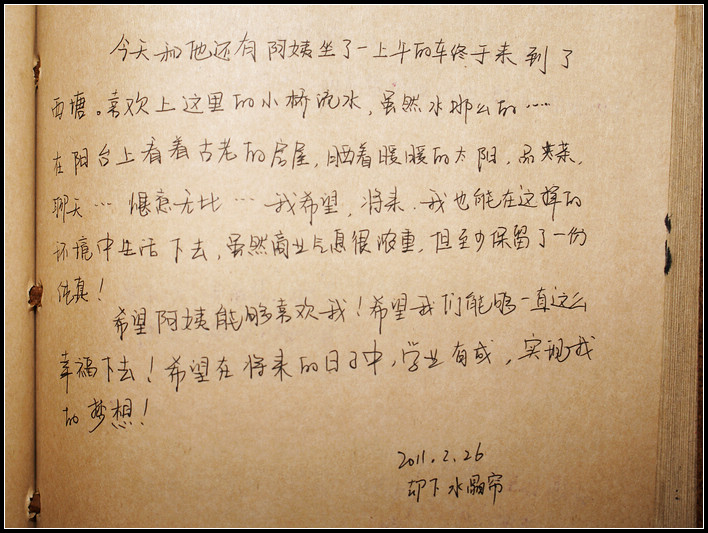 今天和他还有阿姨坐了一上午的车终于来到了
西塘。喜欢上这里的小桥流水，虽然水那么的……
在阳台上看着古老的房屋，晒着暖暖的太阳，品茶，
聊天…惬意无比…我希望，将来，我也能在这样的
环境中生活下去，虽然商业气息很浓重，但至少保留了一份
纯真！
希望阿姨能够喜欢我！希望我们能够一直这么
幸福下去！希望在将来的日子中，学业有成，实现我
的梦想！
2011.2.26
却下水晶帘